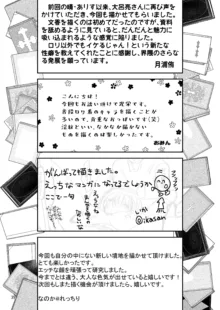 前回の縄・ありす以来、大呂亮さんに再び声を
かけていただき、今回も描かせてもらいました。
文香を描くのは初めてだったのですが、資料
を舐めるように見ていると、だんだんと魅力に
吸い込まれるような感覚に陥りました。
ロリ以外でもイケるじゃん!という新たな
性癖を教えてくれたことに感謝し、界隈のさらな
る発展を願っています。
月浦侑
こんにちは!
今回もお誘い頂けて光栄です。
日頃おむねのあるキャラを描くことが
多いので、貴重なおっぱいです(又)
淫紋といい、なかなか描かない
ものを描けて楽しかったです!
おみん
がんばって描きました。
えっちなマンガになってるでしょうか。
ここで一句
いか
@ikasan
今回も自分の中にない新しい境地を描かせて頂けました。
とても楽しかったです。
エッチな顔を頑張って研究しました。
今までとは違う、大人な色気が出せていると嬉しいです!
次回もまた描く機会が頂けたら、嬉しいです。
なのかHれっちり